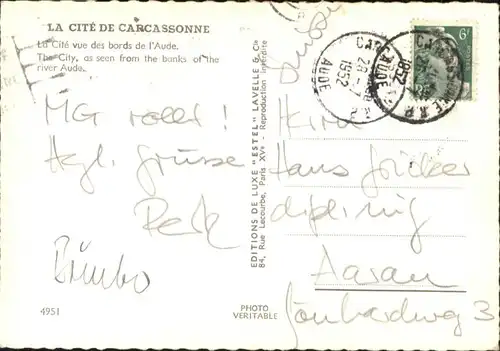 LA CITÉ DE CARCASSONNE
La Cité vue des bords de l'Aude.
The City, as seen from the banks of the
river Aude.
MG rollt!
Hzl. Grüsse
Bimbo
4951
EDITIONS DE LUXE "ESTEL" LAVELLE & Cie
84, Rue Lecourbe, Paris XVe - Reproduction interdite
PHOTO
VERITABLE
6F
CARCASSONNE R.P.
1952
AUDE
Herrn
Hans
dipl. ing
Aarau